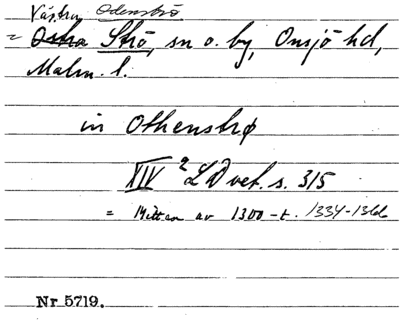 Västra Odensbro.
= Östra Strö, sn o. by, Onsjö hd,
Malm. l.
in Othenstrø
XIV 2 LD vet. s. 315
= Mitten av 1300-t. 1334-1366
Nr 5719.